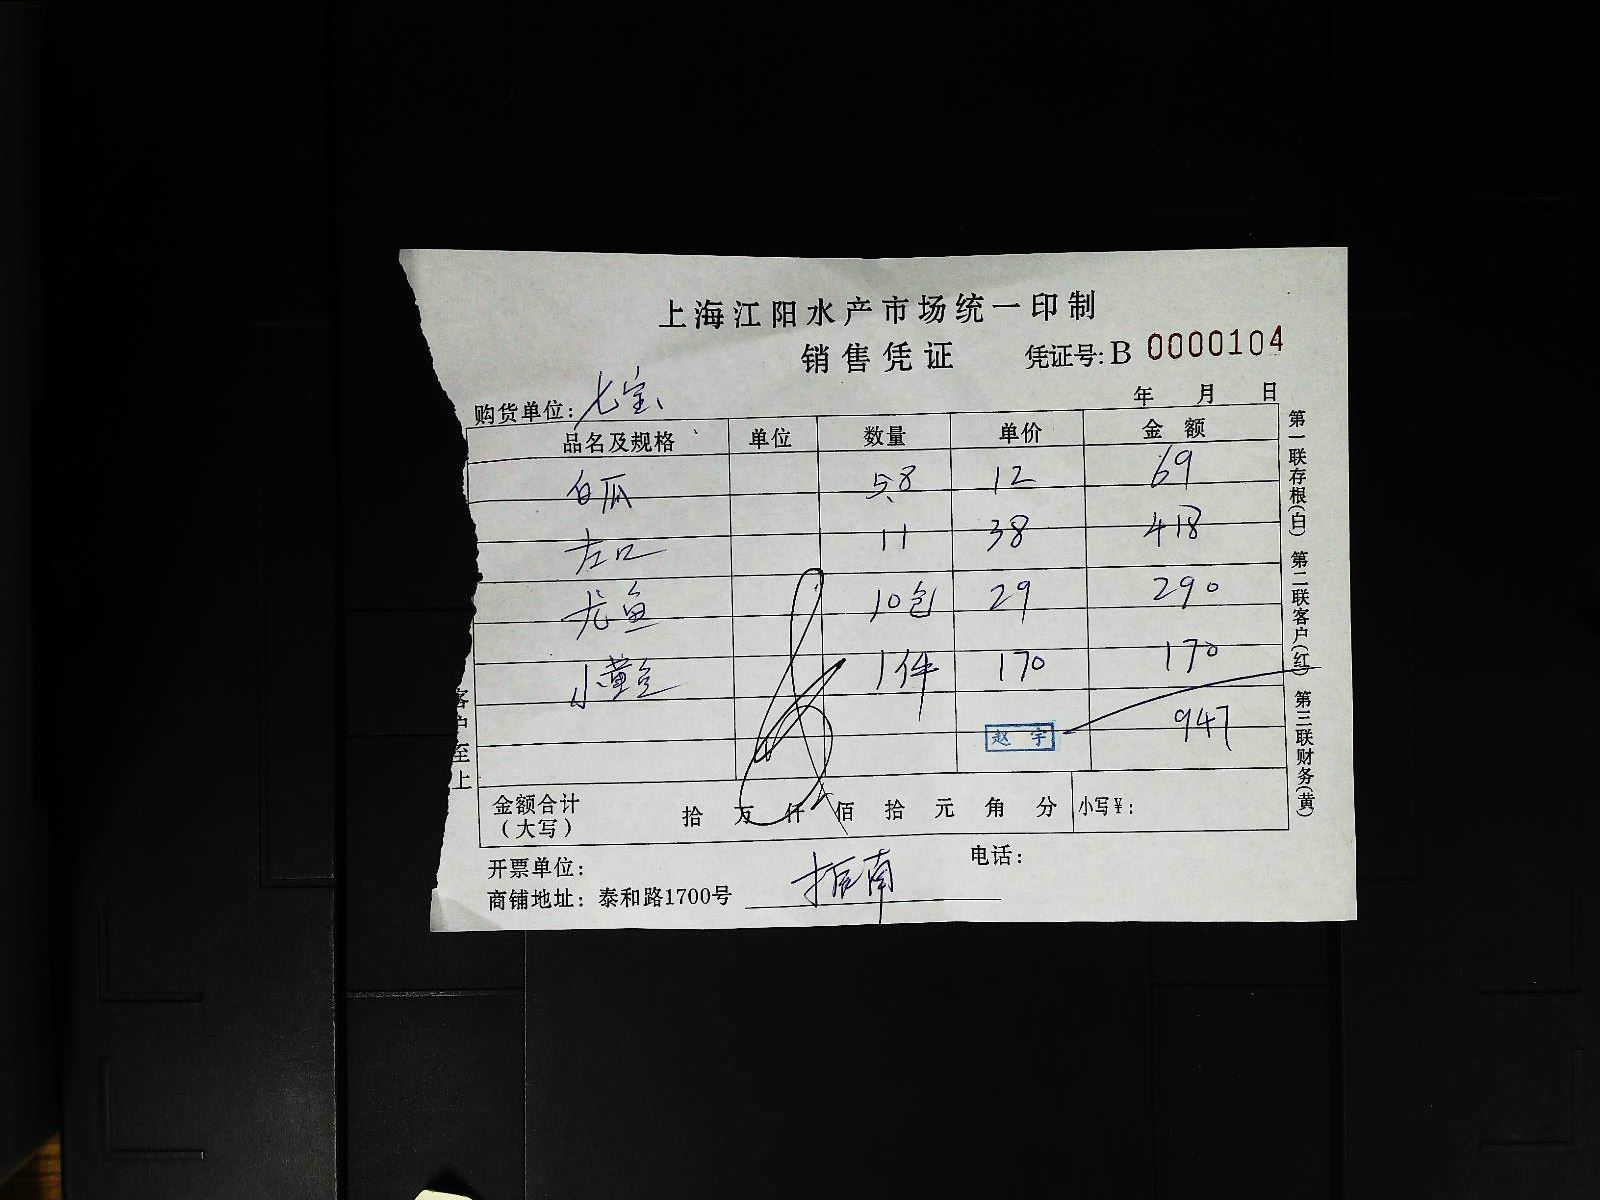 上海江阳水产市场统一印制
销售凭证 凭证号: B 0000104
购货单位: 七宝 年 月 日
品名及规格 单位 数量 单价 金额
白瓜 5.8 12 69
左口 11 38 418
龙鱼 10包 29 290
小黄鱼 1件 170 170
赵宇 947
金额合计(大写) 拾 万 仟 佰 拾 元 角 分 小写¥:
开票单位: 电话:
商铺地址: 泰和路1700号 振南
第一联存根(白) 第二联客户(红) 第三联财务(黄)
客户至上